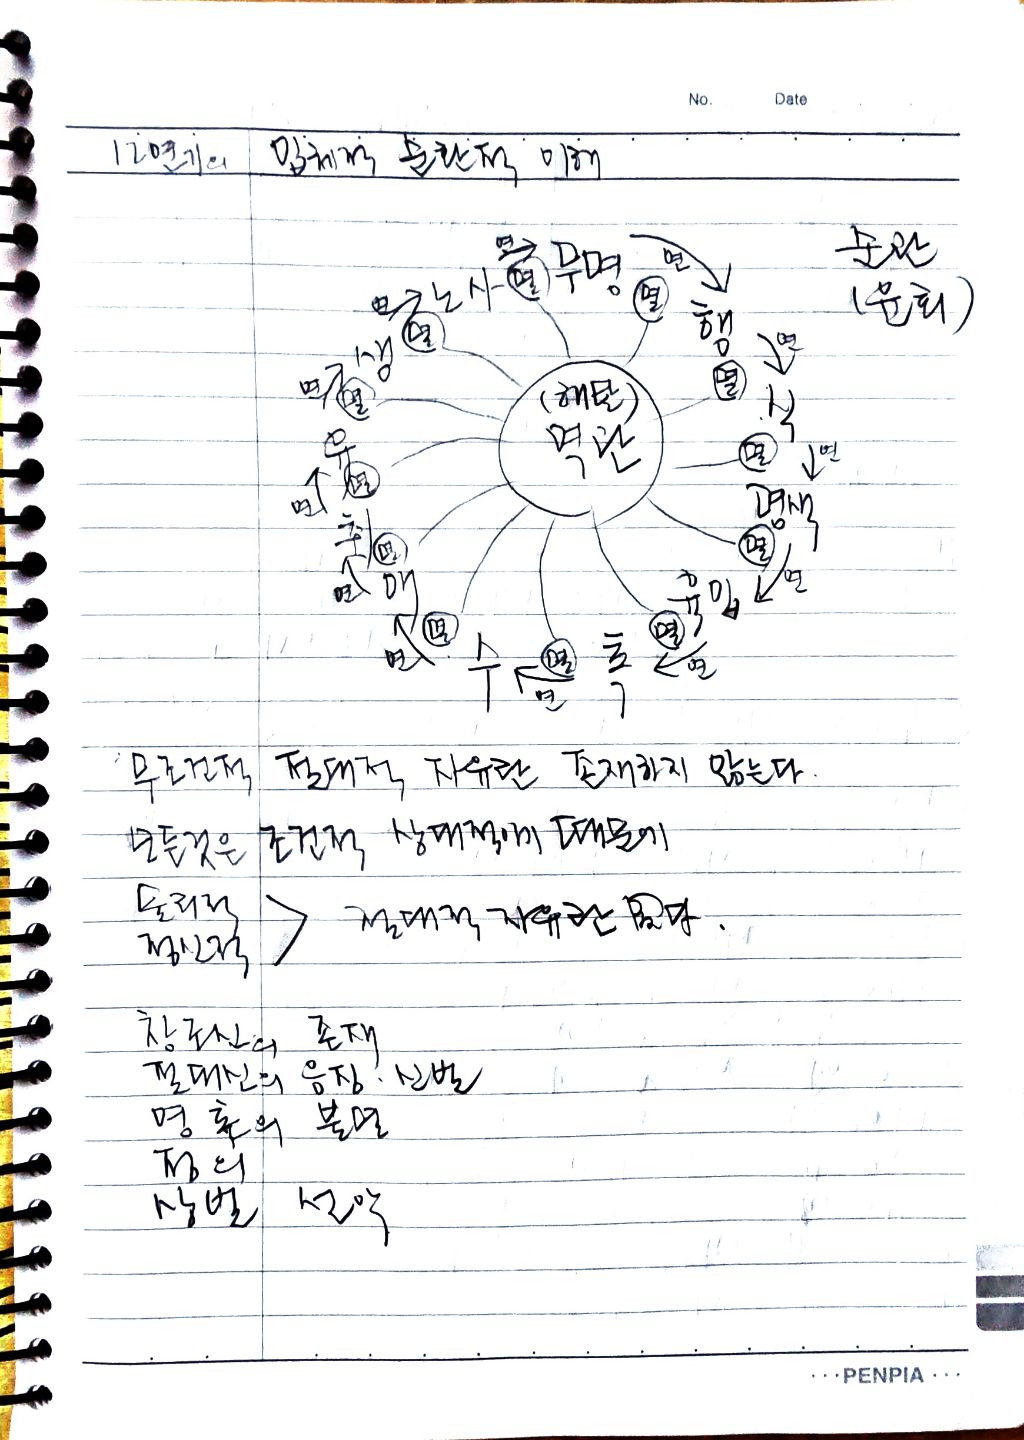 No. Date
12연기의 입체적 순환적 이해
순환
(윤회)
연 멸 무명 연 멸
행 연 멸
식 연 멸
명색 연 멸
육입 연 멸
촉 연 멸
수 연 멸
애 연 멸
취 연 멸
유 연 멸
생 연 멸
노사
(해탈)
멱란
무조건적 절대적 자유란 존재하지 않는다.
모든것은 조건적 상대적이기 때문에
물리적
정신적 > 절대적 자유란 없다.
창조신의 존재
절대신의 응징·신벌
영혼의 불멸
정의
상벌 선악
···PENPIA···